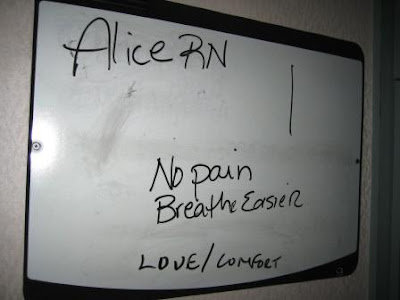 Alice RN
No pain
Breathe Easier
LOVE/COMFORT